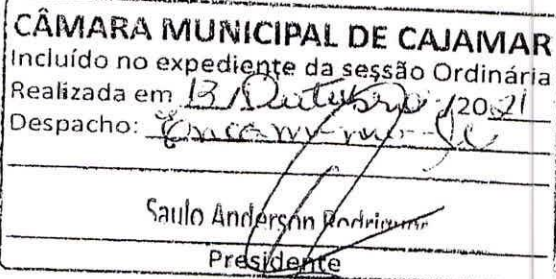 CÂMARA MUNICIPAL DE CAJAMAR
Incluído no expediente da sessão Ordinária
Realizada em 13 / Outubro /2021
Despacho: Encaminhe-se
Saulo Anderson Rodrigues
Presidente